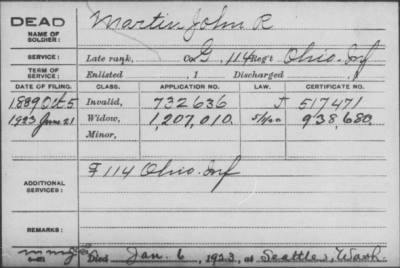 DEAD Martin John R
NAME OF SOLDIER:
SERVICE: Late rank, Co. G, 114 Reg't Ohio Inf
TERM OF SERVICE: Enlisted , 1 Discharged , 1
DATE OF FILING. CLASS. APPLICATION NO. LAW. CERTIFICATE NO.
1889 Oct 5 Invalid, 732636 J 517471
1923 Jun 21 Widow, 1,207,010. 938,680.
Minor,
ADDITIONAL SERVICES: F 114 Ohio Inf
REMARKS:
Died Jan. 6, 1923, at Seattle, Wash.